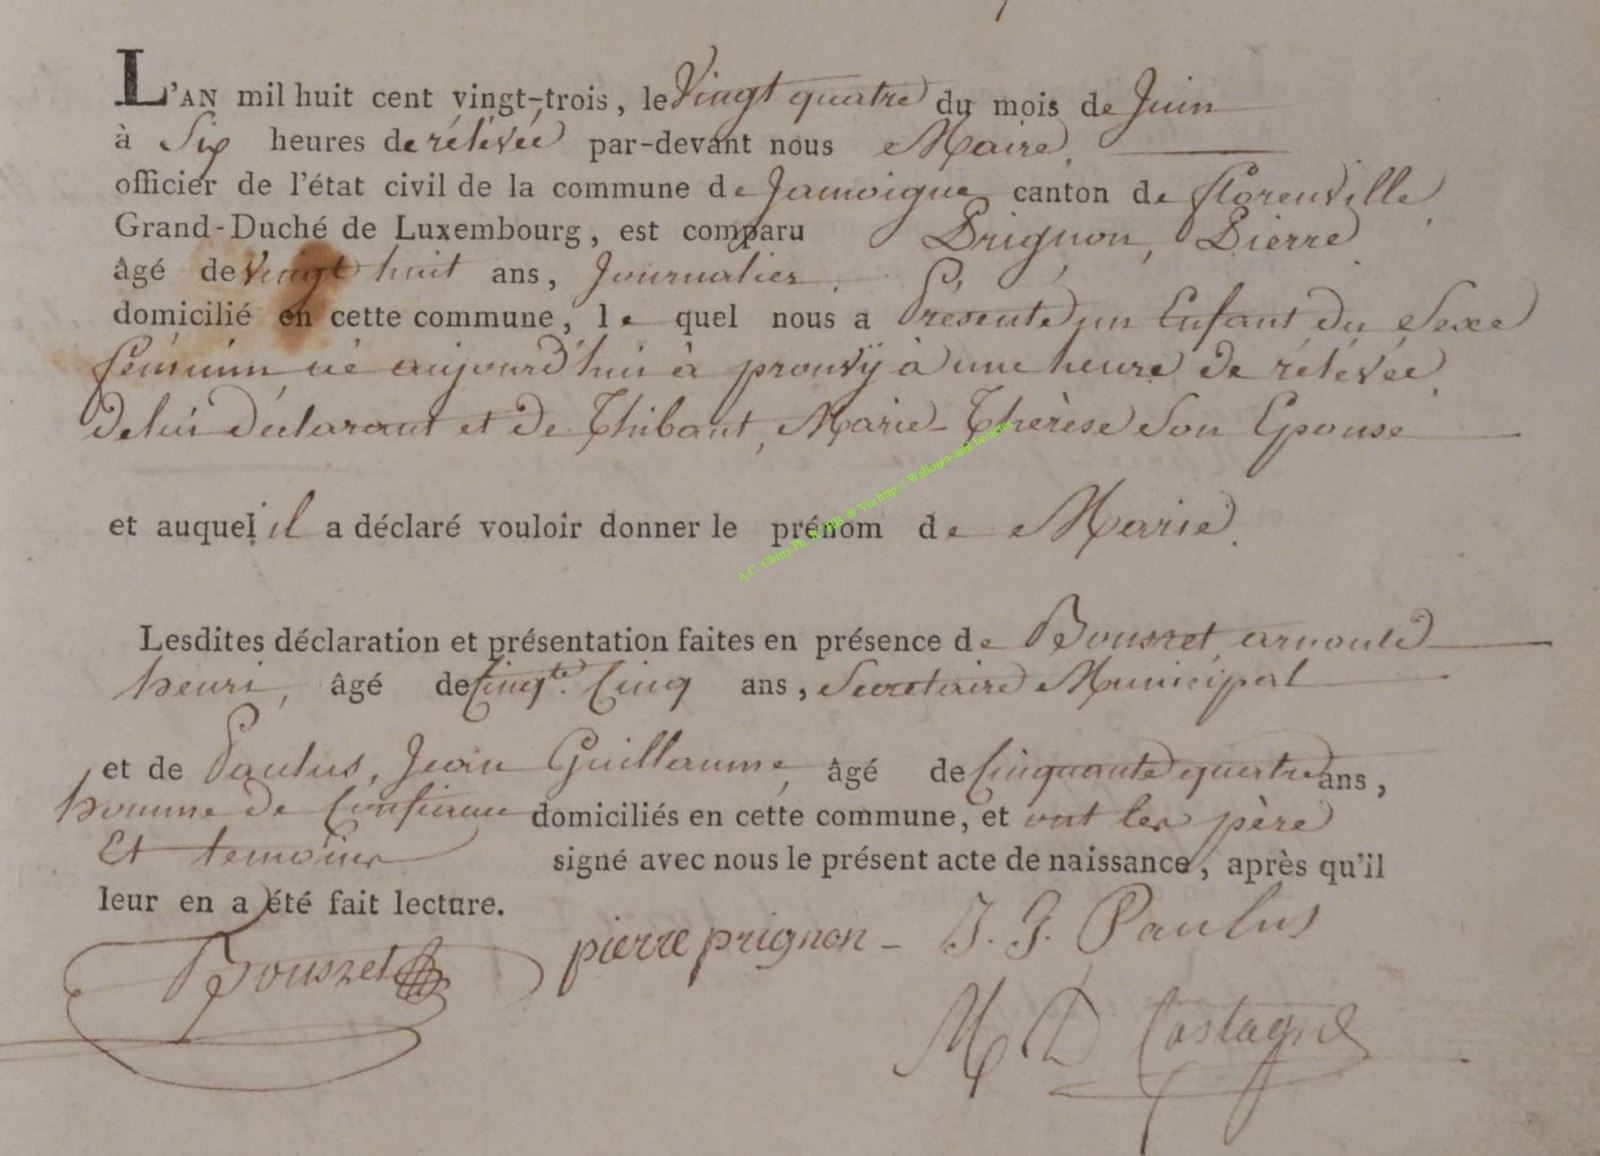 L'AN mil huit cent vingt-trois, le Vingt quatre du mois de Juin
à Six heures de rélévée par-devant nous Maire,
officier de l'état civil de la commune de Jamoigne canton de florenville
Grand-Duché de Luxembourg, est comparu Prignon, Pierre
âgé de Vingt huit ans, Journalier.
domicilié en cette commune, le quel nous a Présenté un Enfant du Sexe
féminin né aujourd'hui à prouvÿ à une heure de rélévée
de lui déclarant et de Thibaut, Marie-Thérèse Son Epouse
et auquel il a déclaré vouloir donner le prénom de Marie.
A.C. Chiny Ph. & Via http:// Wallonia-asbl.be/actes
Lesdites déclaration et présentation faites en présence de Bousret, arnould
henri, âgé de Cinqte. Cinq ans, Secretaire Municipal
et de Paulus, Jean Guillaume, âgé de Cinquante quatre ans,
homme de Confiance domiciliés en cette commune, et ont les père
Et temoins signé avec nous le présent acte de naissance, après qu'il
leur en a été fait lecture.
Bousret pierre prignon - J. G. Paulus
M D Castagne